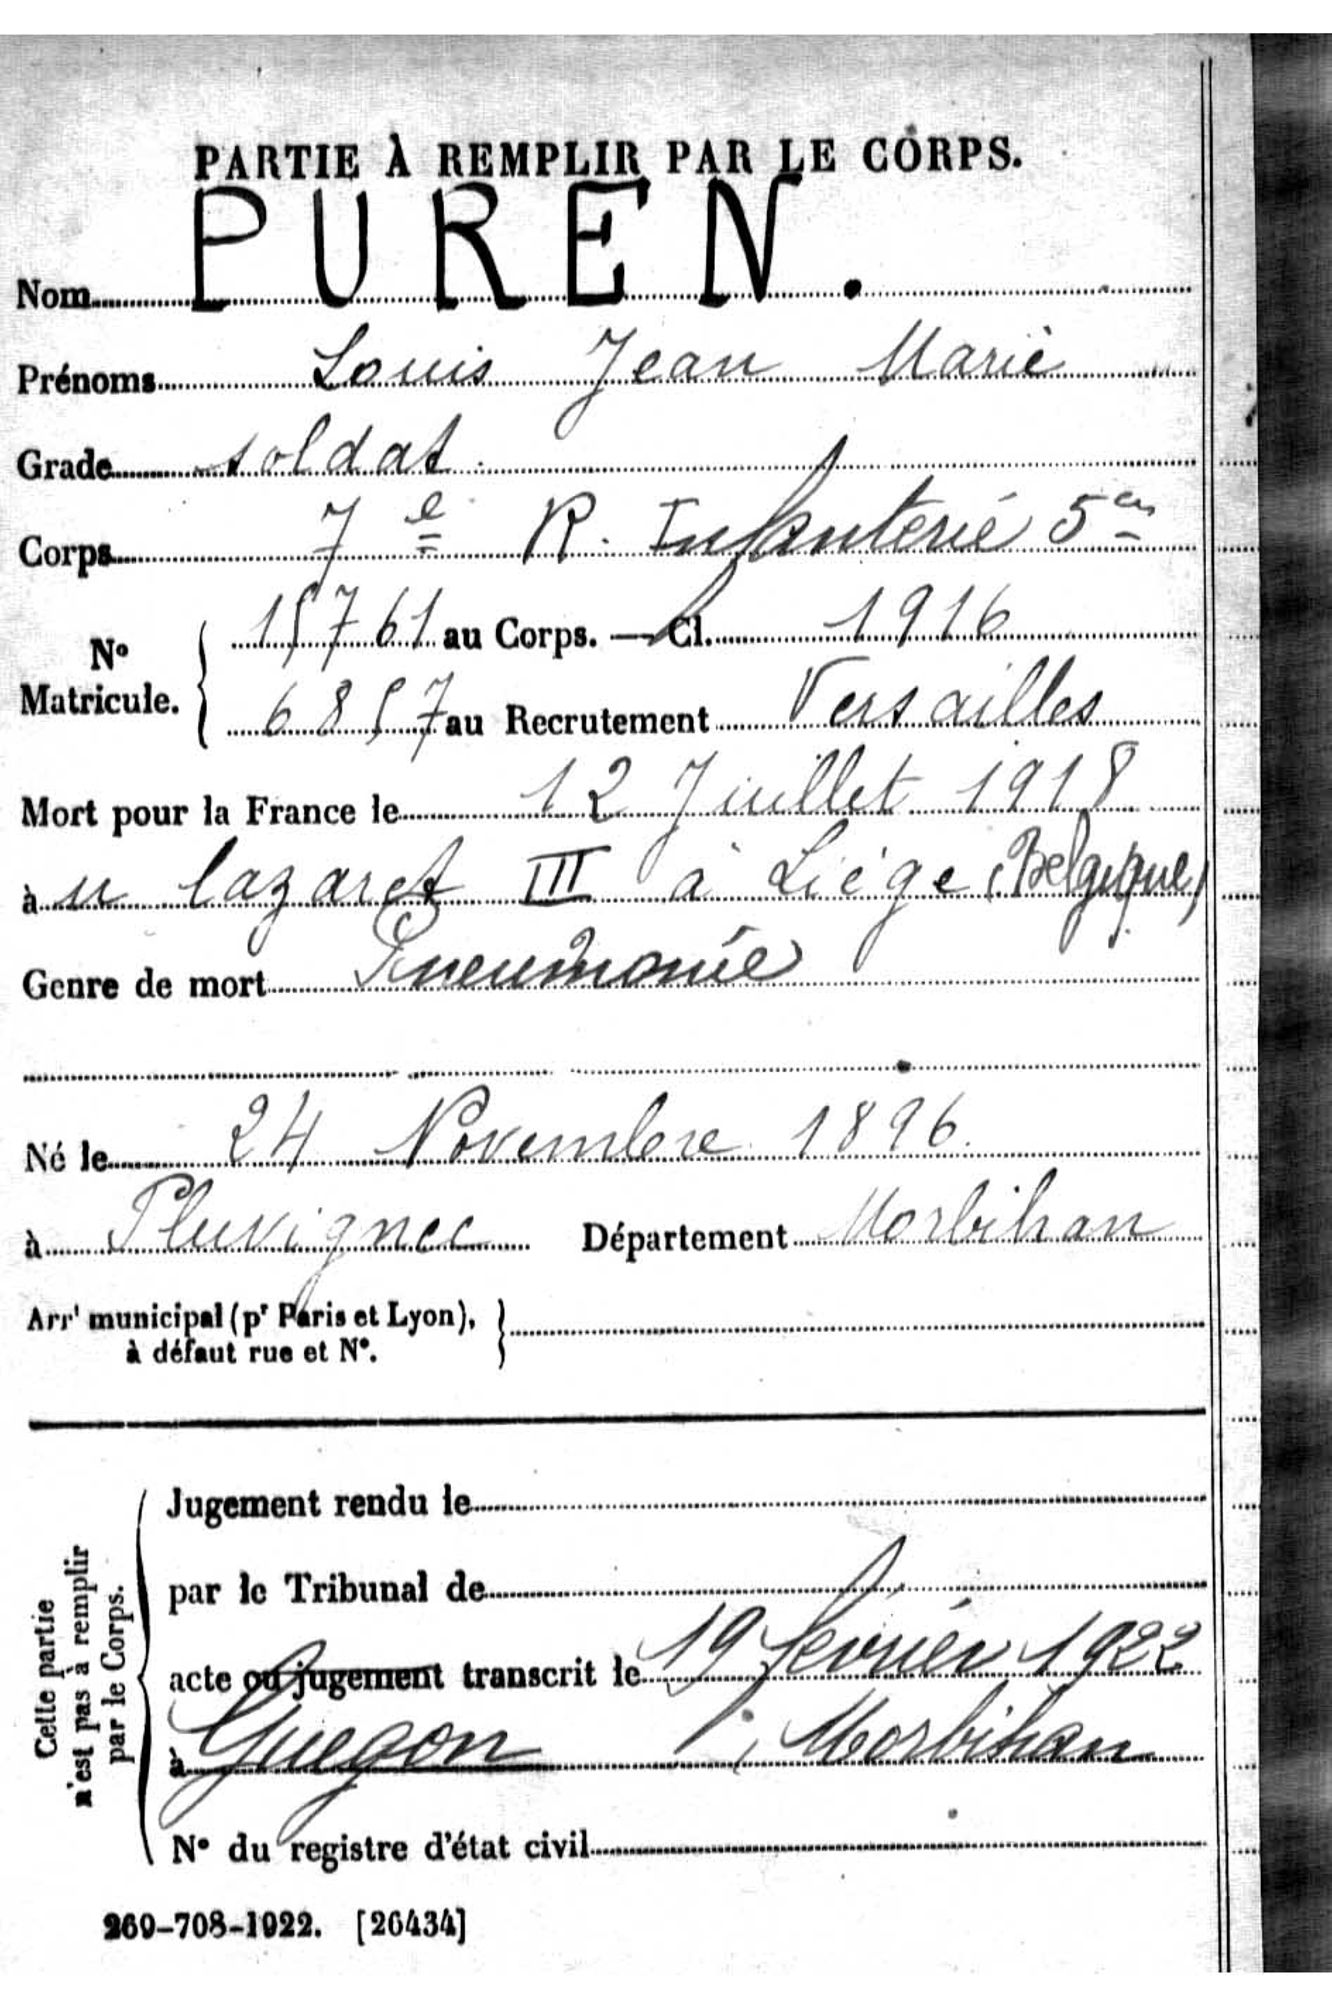 PARTIE À REMPLIR PAR LE CORPS.
Nom PUREN.
Prénoms Louis Jean Marie
Grade soldat.
Corps 7e R. Infanterie 5cie
No Matricule. { 15761 au Corps. — Cl. 1916
6857 au Recrutement Versailles
Mort pour la France le 12 Juillet 1918
àu lazaret III à Liège (Belgique)
Genre de mort Pneumonie
Né le 24 Novembre 1896.
à Pluvigner Département Morbihan
Arrt municipal (pr Paris et Lyon),
à défaut rue et No.
Cette partie
n'est pas à remplir
par le Corps.
Jugement rendu le
par le Tribunal de
acte ou jugement transcrit le 19 février 1922
à Guegon, Morbihan
No du registre d'état civil
269-708-1922. [26434]